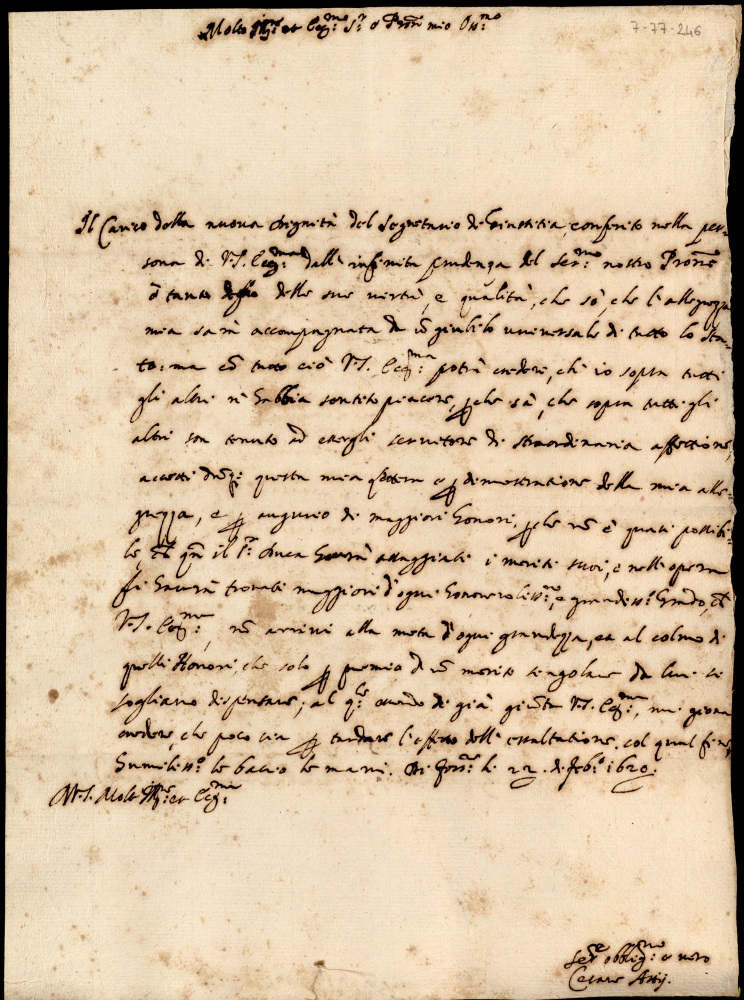 7-77-246
Molto Ill.re et Ecc.mo S.r e Pron mio Oss.mo
Il Carico della nuova dignità del Segretario di Giustitia, conferito nella per-
sona di V.S. Ecc.ma dalla infinita prudenza del Ser.mo nostro Prone
è tanto degno delle sue virtù, e qualità, che sò, che l'allegrezza
mia sarà accompagnata da ũ giubilo universale di tutto lo Sta-
to: ma cõ tutto ciò V.S. Ecc.ma potrà credere, ch'io sopra tutti
gli altri n'habbia sentito piacere, ꝑche sà, che sopra tutti gli
altri son tenuto ad esergli servitore di straordinaria affettione,
accetti questa mia ꝑ dimostratione della mia alle-
grezza, e ꝑ augurio di maggiori honori, ꝑche nõ è quasi possibi-
le, che qñ il S.r Duca haurà assaggiati i meriti suoi, e nell'opera
gli haurà trovati maggiori d'ogni honorevoliss.mo, e grandiss.o Grado, che
V.S. Ecc.ma, nõ arrivi alla meta d'ogni grandezza, et al colmo di
quelli Honori, che solo ꝑ premio d'ũ merito singolare da lui si
sogliano dispensare; al q.le essendo di già giũta V.S. Ecc.ma, mi giova
credere, che poco sia ꝑ tardare l'effetto dell'essaltatione. col qual fine
humiliss.o le bacio le mani. Di li 22. di Feb.o 1620.
Di V.S. Molto Ill.re et Ecc.ma
Ser.e obblig.mo e vero
Cesare